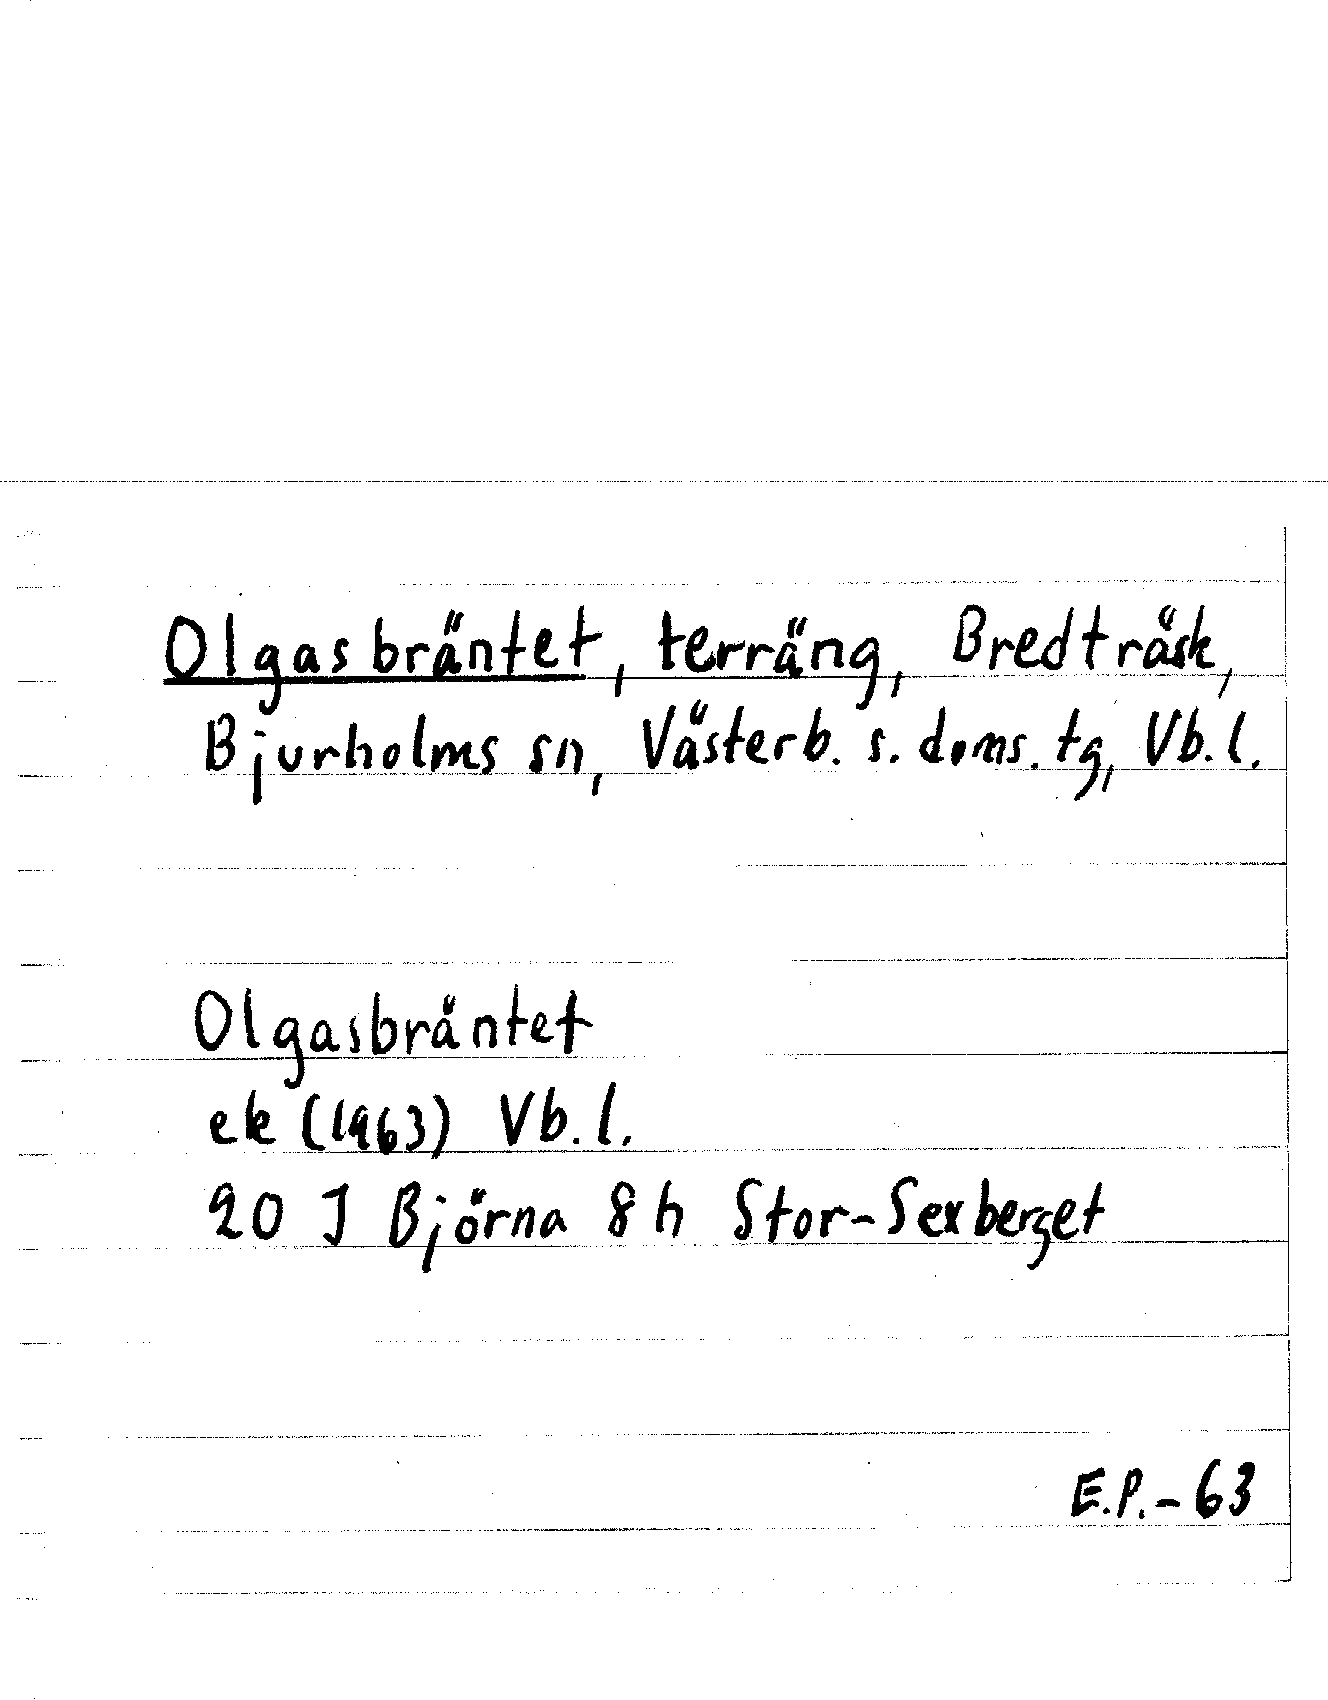 Olgasbräntet, terräng, Bredträsk,
Bjurholms sn, Västerb. s. doms. tg, Vb. l.
Olgasbräntet
ek (1963) Vb. l.
20 J Björna 8 h Stor-Sexberget
E.P.-63